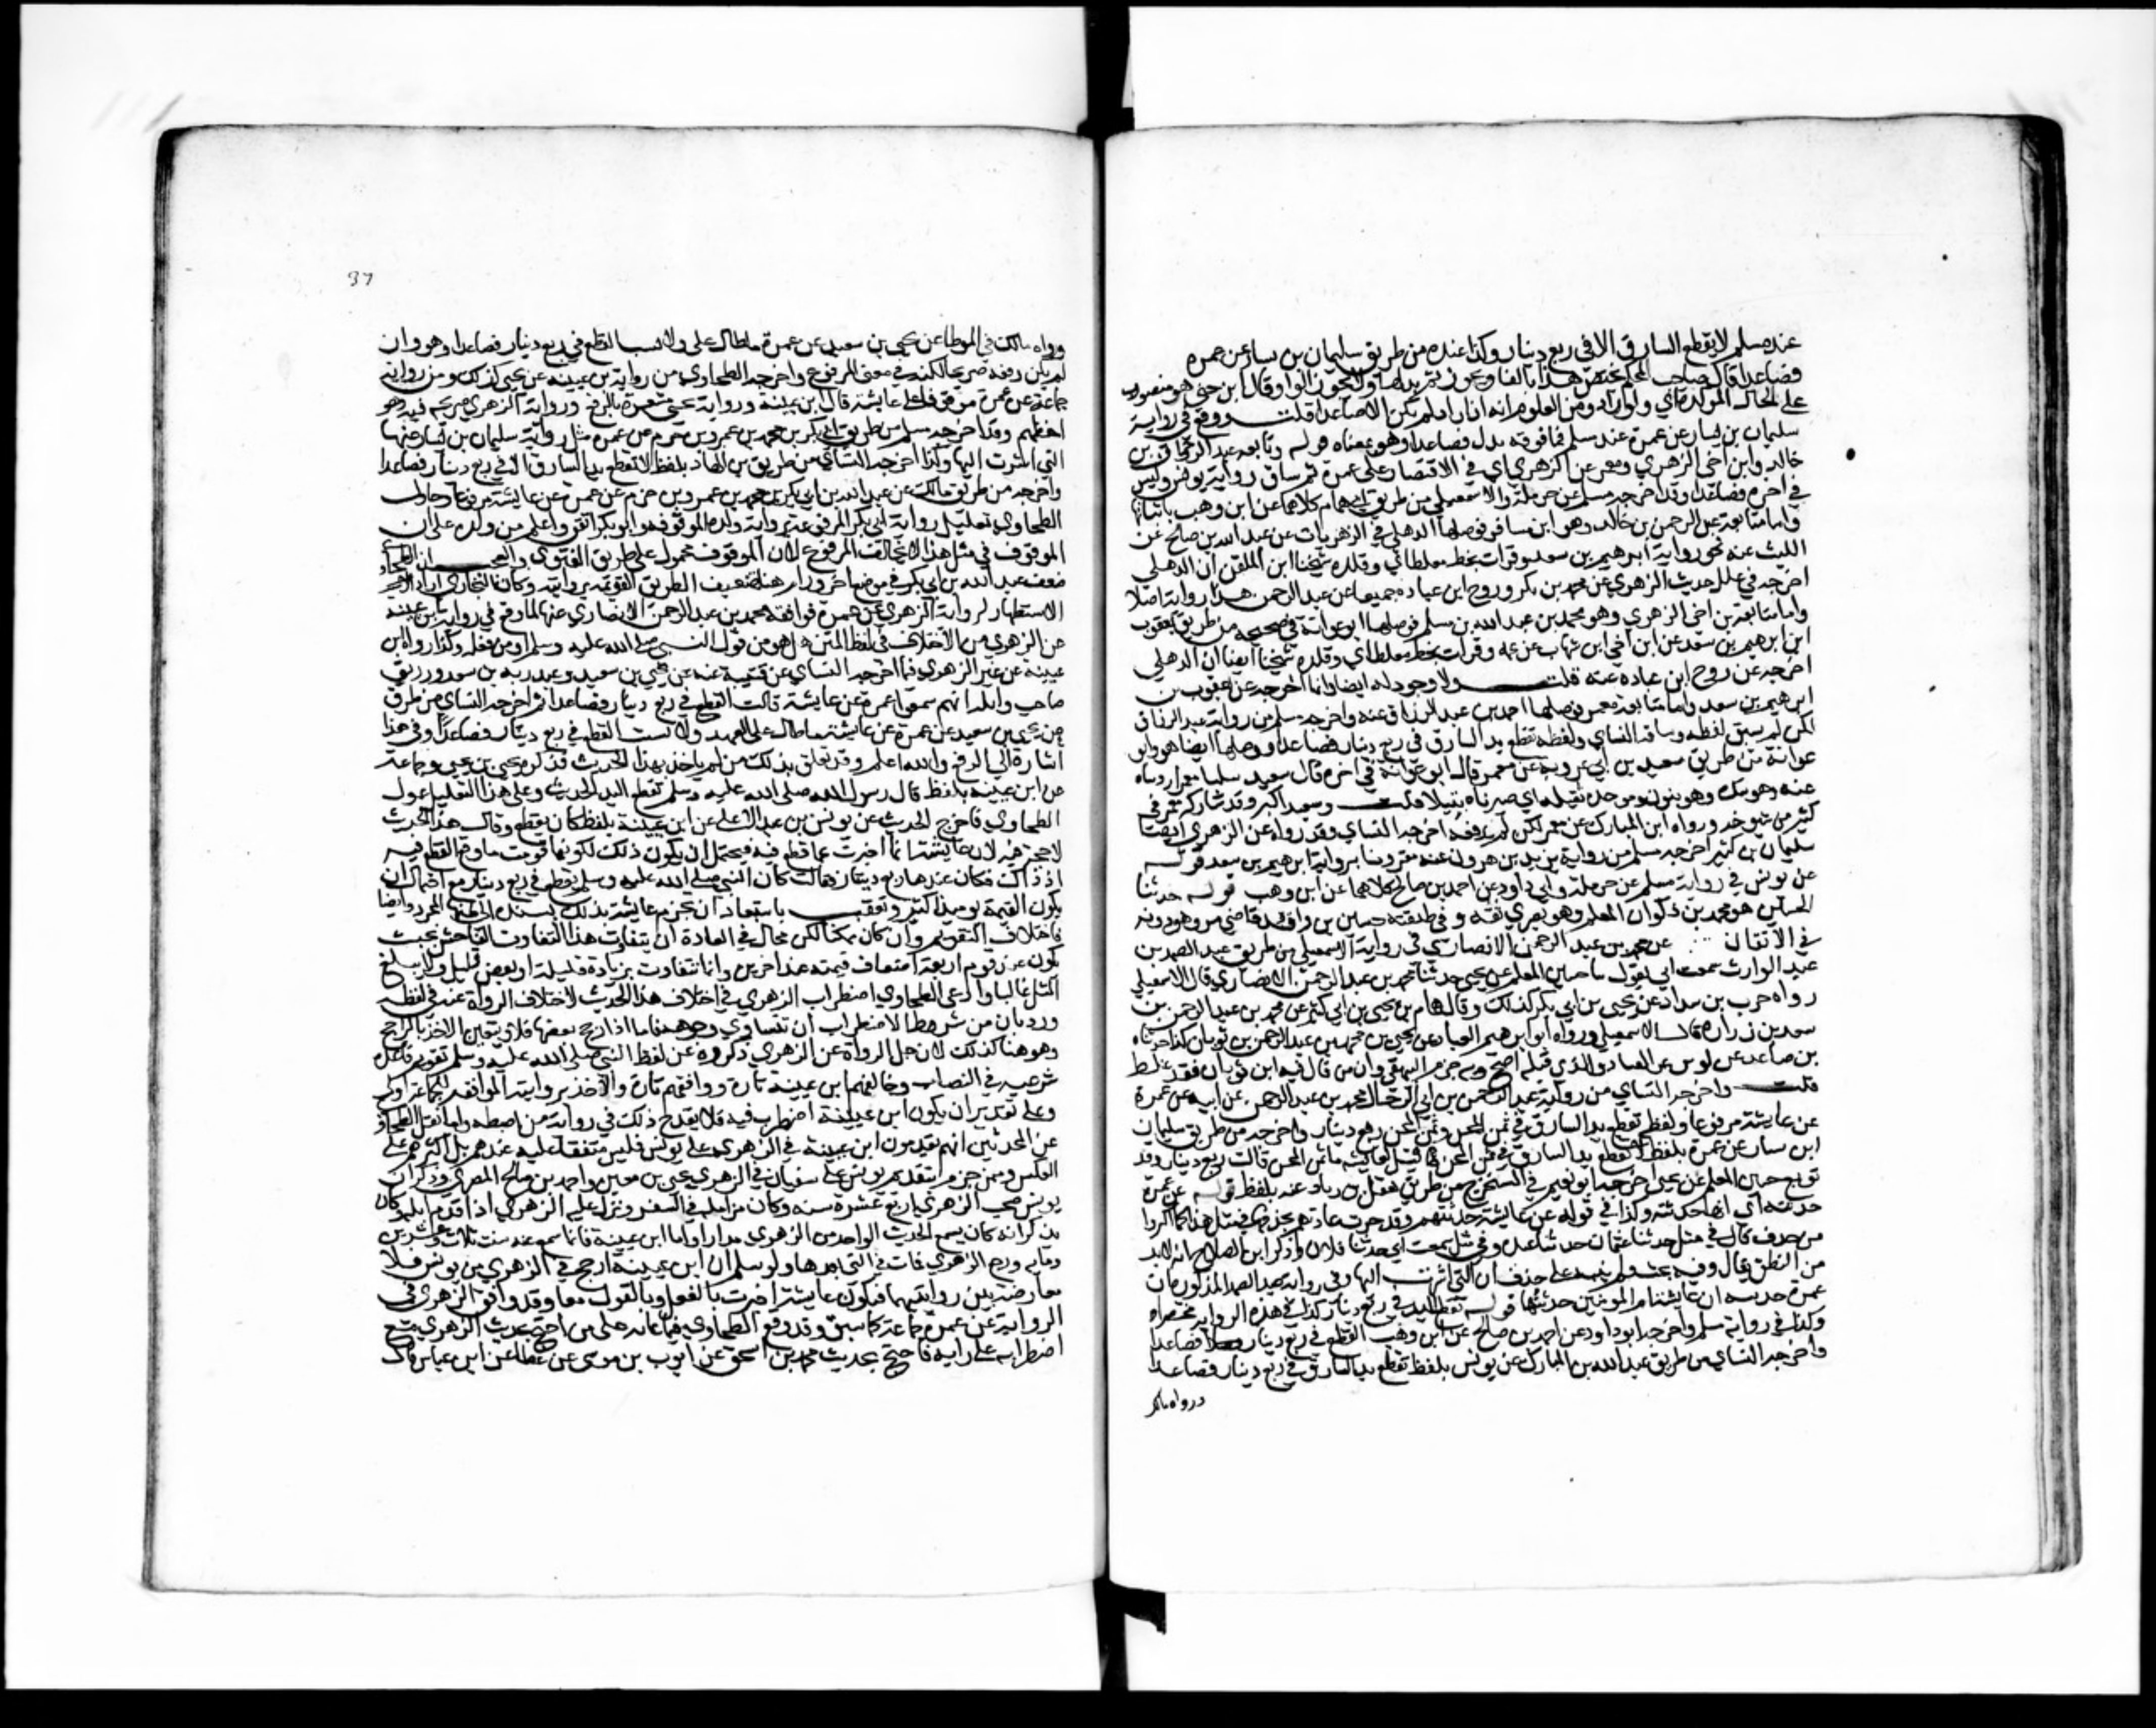 عند مسلم لا يقطع السارق الا في ربع دينار وكذا عنده من طريق سليمان بن يسار عن عمرة
فصاعدا قال صاحب المحكم يختص هذا بالفا ويجوز ثم بدلها ولا يجوز الواو وقال ابن جني هو منصوب
على الحال المؤكدة اي ولو زاد ومن المعلوم انه اذا زاد لم يكن الا صاعدا قلت ووقع في رواية
سليمان بن يسار عن عمرة عند مسلم فما فوقه بدل فصاعدا وهو بمعناه قوله وتابعه عبد الرحمن بن
خالد وابن اخي الزهري ومعمر عن الزهري اي في الاقتصار على عمرة ثم ساق رواية يونس وليس
في اخره فصاعدا وقد اخرجه مسلم عن حرملة والاسمعيلي من طريق همام كلاهما عن ابن وهب باثباتها
واما متابعة عبد الرحمن بن خالد وهو ابن مسافر فوصلها الذهلي في الزهريات عن عبد الله بن صالح عن
الليث عنه نحو رواية ابرهيم بن سعد وقرات بخط مغلطاي وقلده شيخنا ابن الملقن ان الذهلي
اخرجه في علل حديث الزهري عن محمد بن بكر وروح ابن عبادة جميعا عن عبد الرحمن هذا رواية اصلا
واما متابعة ابن اخي الزهري وهو محمد بن عبد الله بن مسلم فوصلها ابو عوانة في صحيحه من طريق يعقوب
ابن ابرهيم بن سعد عن ابن اخي ابن شهاب عن عمه وقرات بخط مغلطاي وقلده شيخنا ايضا ان الذهلي
اخرجه عن روح ابن عبادة عنه قلت ولا وجود له ايضا وانما اخرجه عن يعقوب بن
ابرهيم بن سعد واما متابعة معمر فوصلها احمد بن عبد الرزاق عنه واخرجه مسلم من رواية عبد الرزاق
لكن لم يسق لفظه وساقه النساي ولفظه تقطع يد السارق في ربع دينار فصاعدا ووصلها ايضا هو وابو
عوانة من طريق سعيد بن ابي عروبة عن معمر قال ابو عوانة في اخره قال سعيد نبلنا معمرا رويناه
عنه وهو شاب وهو بنون وموحدة ثقيلة اي صيرناه نبيلا قلت وسعيد اكبر وقد شاركه معمر في
كثير من شيوخه ورواه ابن المبارك عن معمر لكن لم يرفعه اخرجه النساي وقد رواه عن الزهري ايضا
سليمان بن كثير اخرجه مسلم من رواية يزيد بن هرون عنه مقرونا برواية ابرهيم بن سعد قوله
عن يونس في رواية مسلم عن حرملة وابي داود عن احمد بن صالح كلاهما عن ابن وهب قوله حدثنا
الحسين هو محمد بن ذكوان المعلم وهو بصري ثقة وفي طبقته حسين بن واقد قاضي مرو وهو دونه
في الاتقان عن محمد بن عبد الرحمن الانصاري في رواية الاسمعيلي من طريق عبد الصمد بن
عبد الوارث سمعت ابي يقول ثنا حسين المعلم عن يحيى حدثنا محمد بن عبد الرحمن الانصاري قال الاسمعيلي
رواه حرب بن شداد عن يحيى بن ابي بكر كذلك وقال همام بن يحيى بن ابي كثير عن محمد بن عبد الرحمن بن
سعد بن زرارة قال الاسمعيلي ورواه ابو ابرهيم القناد عن يحيى بن محمد بن عبد الرحمن بن ثوبان كذا حدثناه
بن صاعد عن لوين عن القناد والذي قبله اصح وبه جزم البيهقي وان من قال فيه ابن ثوبان فقد غلط
قلت واخرجه النساي من رواية عبد الرحمن بن ابي الرحال محمد بن عبد الرحمن عن ابيه عن عمرة
عن عايشة مرفوعا ولفظه تقطع يد السارق في ثمن المجن وثمن المجن ربع دينار واخرجه من طريق سليمان
ابن يسار عن عمرة بلفظ لا تقطع يد السارق في ثمن المجن فما قيل لعايشة ما ثمن المجن قالت ربع دينار وقد
توبع حسين المعلم عن يحيى اخرجه ابو نعيم في المستخرج من طريق هقل بن زياد عنه بلفظ قوله عن عمرة
حدثته اي انها حدثته وكذا في قوله عن عايشة حدثتهم وقد جرت عادتهم بحذفها في مثل هذا كما اكثروا
من حذف قال في مثل حدثنا عثمان حدثنا عبدة وفي مثل سمعت ابي حدثنا فلان وذكر ابن الصلاح انه لابد
من النطق بقال وفيه بحث ولم ينبه على حذف ان التي اشرت اليها وفي رواية عبد الصمد المذكورة ان
عمرة حدثته ان عايشة ام المومنين حدثتها قوله تقطع اليد في ربع دينار كذا في هذه الرواية مختصرا
وكذا في رواية مسلم واخرجه ابو داود عن احمد بن صالح عن ابن وهب القطع في ربع دينار فصاعدا
واخرجه النساي من طريق عبد الله بن المبارك عن يونس بلفظ تقطع يد السارق في ربع دينار فصاعدا
ورواه مالك
37
ورواه مالك في الموطا عن يحيى بن سعيد عن عمرة ما طال علي ولا نسيت القطع في ربع دينار فصاعدا وهو وان
لم يكن رفعه صريحا لكنه في معنى المرفوع واخرجه الطحاوي من رواية بن عيينة عن يحيى كذلك ومن رواية
جماعة عن عمرة موقوفا على عايشة قال ابن عيينة ورواية يحيى مشعرة بالرفع ورواية الزهري صريحة فيه وهو
احفظهم وقد اخرجه مسلم من طريق ابي بكر بن محمد بن عمرو بن حزم عن عمرة مثل رواية سليمان بن يسار عنها
التي اشرت اليها وكذا اخرجه النساي من طريق بن الهاد بلفظ لا تقطع يد السارق الا في ربع دينار فصاعدا
واخرجه من طريق مالك عن عبد الله بن ابي بكر بن محمد بن عمرو بن حزم عن عمرة عن عايشة مرفوعا وحاول
الطحاوي تعليل رواية ابي بكر المرفوعة برواية ولده الموقوفة وابو بكر اتقن واعلم من ولده على ان
الموقوف في مثل هذا لا يخالف المرفوع لان الموقوف محمول على طريق الفتوى والعجب ان الطحاوي
ضعف عبد الله بن ابي بكر في موضع اخر ورام هنا تضعيف الطريق القويمة بروايته وكان البخاري اراد
الاستظهار لرواية الزهري عن عمرة بموافقة محمد بن عبد الرحمن الانصاري عنها لما وقع في رواية بن عيينة
عن الزهري من الاختلاف في لفظ المتن هل هو من قول النبي صلى الله عليه وسلم او من فعله وكذا رواه ابن
عيينة عن غير الزهري فيما اخرجه النساي عن قتيبة عنه عن يحيى بن سعيد وعبد ربه بن سعد ورزيق
صاحب وايلة انهم سمعوا عمرة عن عايشة قالت القطع في ربع دينار فصاعدا ثم اخرجه النساي من طرق
عن يحيى بن سعيد عن عمرة عن عايشة ما طال علي العهد ولا نسيت القطع في ربع دينار فصاعدا وفي هذا
اشارة الى الرفع والله اعلم وقد تعلق بذلك من لم ياخذ بهذا الحديث فذكره يحيى بن يحيى وجماعة
عن ابن عيينة بلفظ كان رسول الله صلى الله عليه وسلم تقطع اليد الحديث وعلى هذا التعليل عول
الطحاوي فاخرج الحديث عن يونس بن عبد الاعلى عن ابن عيينة بلفظ كان يقطع وقال هذا الحديث
لا حجة فيه لان عايشة انما اخبرت عما قطع فيه فيحتمل ان يكون ذلك لكونها قومت ما وقع القطع فيه
اذ ذاك فكان عندها ربع دينار فقالت كان النبي صلى الله عليه وسلم يقطع في ربع دينار مع احتمال ان
يكون القيمة يوميذ اكثر وتعقب باستبعاد ان يجزم عايشة بذلك يستند الى ظنها المجرد وايضا
فاختلاف التقويم وان كان ممكنا لكن محال في العادة ان يتفاوت هذا التفاوت الفاحش بحيث
يكون عند قوم اربعة اضعاف قيمته عند اخرين وانما تتفاوت بزيادة قليلة او نقص قليل ولا يبلغ
المثل غالبا وادعى الطحاوي اضطراب الزهري في اختلاف هذا الحديث لاختلاف الرواة عنه في لفظه
ورد بان من شرط الاضطراب ان تتساوى وجوهه فاما اذا رجح بعضها فلا ويتعين الاخذ بالراجح
وهو هنا كذلك لان جل الرواة عن الزهري ذكروه عن لفظ النبي صلى الله عليه وسلم تقرير قاعدة
شرعية في النصاب وخالفهم ابن عيينة تارة ووافقهم تارة والاخذ بروايته الموافقة للجماعة اولى
وعلى تقدير ان يكون ابن عيينة اضطرب فيه فلا يقدح ذلك في رواية من ضبطه واما نقل الطحاوي
عن المحدثين انهم يقدمون ابن عيينة في الزهري على يونس فليس متفقا عليه عندهم بل اكثرهم على
العكس وممن جزم بتقديم يونس على سفيان في الزهري يحيى بن معين واحمد بن صالح المصري وذكر ان
يونس صحب الزهري اربع عشرة سنة وكان يزامله في السفر وينزل عليه الزهري اذا قدم ايلة وكان
يذكر انه كان يسمع الحديث الواحد من الزهري مرارا واما ابن عيينة فانما سمع عنه سنة ثلاث وعشرين
وماية ورجع الزهري فمات في التي بعدها ولو سلم ان ابن عيينة ارجح في الزهري من يونس فلا
معارضة بين روايتيهما فيكون عايشة اخبرت بالفعل وبالقول معا وقد وافق الزهري في
الرواية عن عمرة جماعة كما سبق وقد وقع الطحاوي فيما عابه على من احتج بحديث الزهري مع
اضطرابه على رايه فاحتج بحديث محمد بن اسحق عن ايوب بن موسى عن عطا عن ابن عباس قال